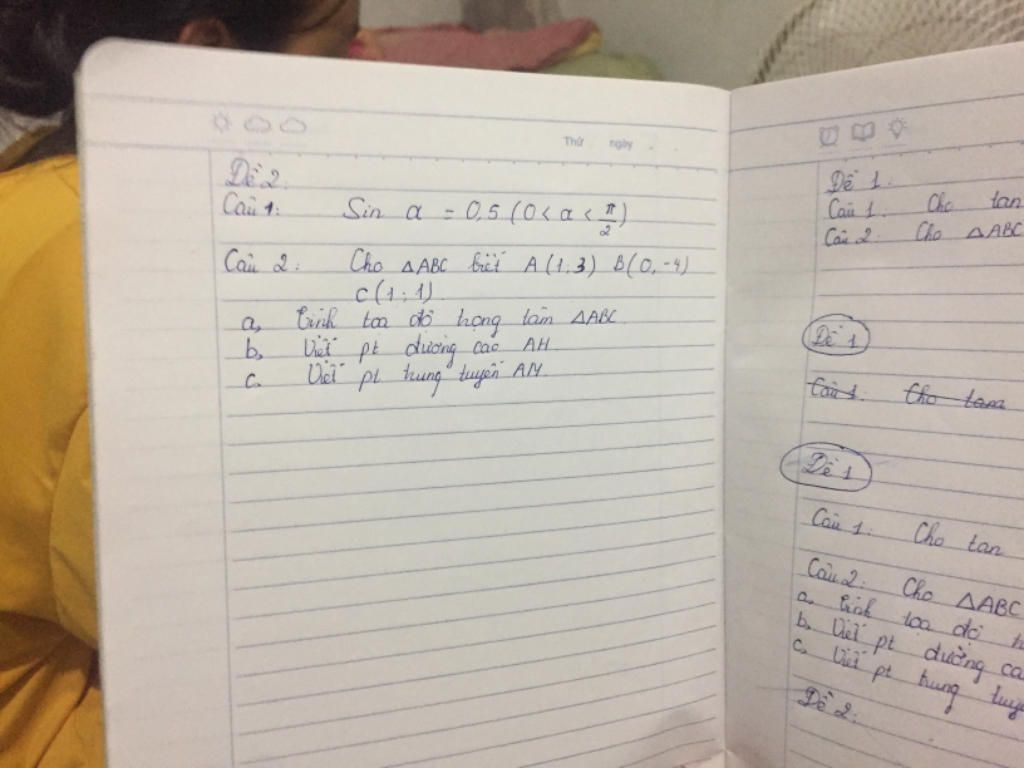 Thứ ngày
Đề 2.
Câu 1: Sin α = 0,5 (0 < α < π/2)
Câu 2: Cho △ABC biết A(1;3) B(0,-4)
C(1;1)
a, Tính toạ độ trọng tâm △ABC
b, Viết pt đường cao AH
c. Viết pt trung tuyến AM.
Đề 1.
Câu 1: Cho tan
Câu 2: Cho △ABC
Đề 1
Câu 1: Cho tam
Đề 1
Câu 1: Cho tan
Câu 2: Cho △ABC
a, Tính toạ độ
b. Viết pt đường ca
c, Viết pt trung tuyế
Đề 2: